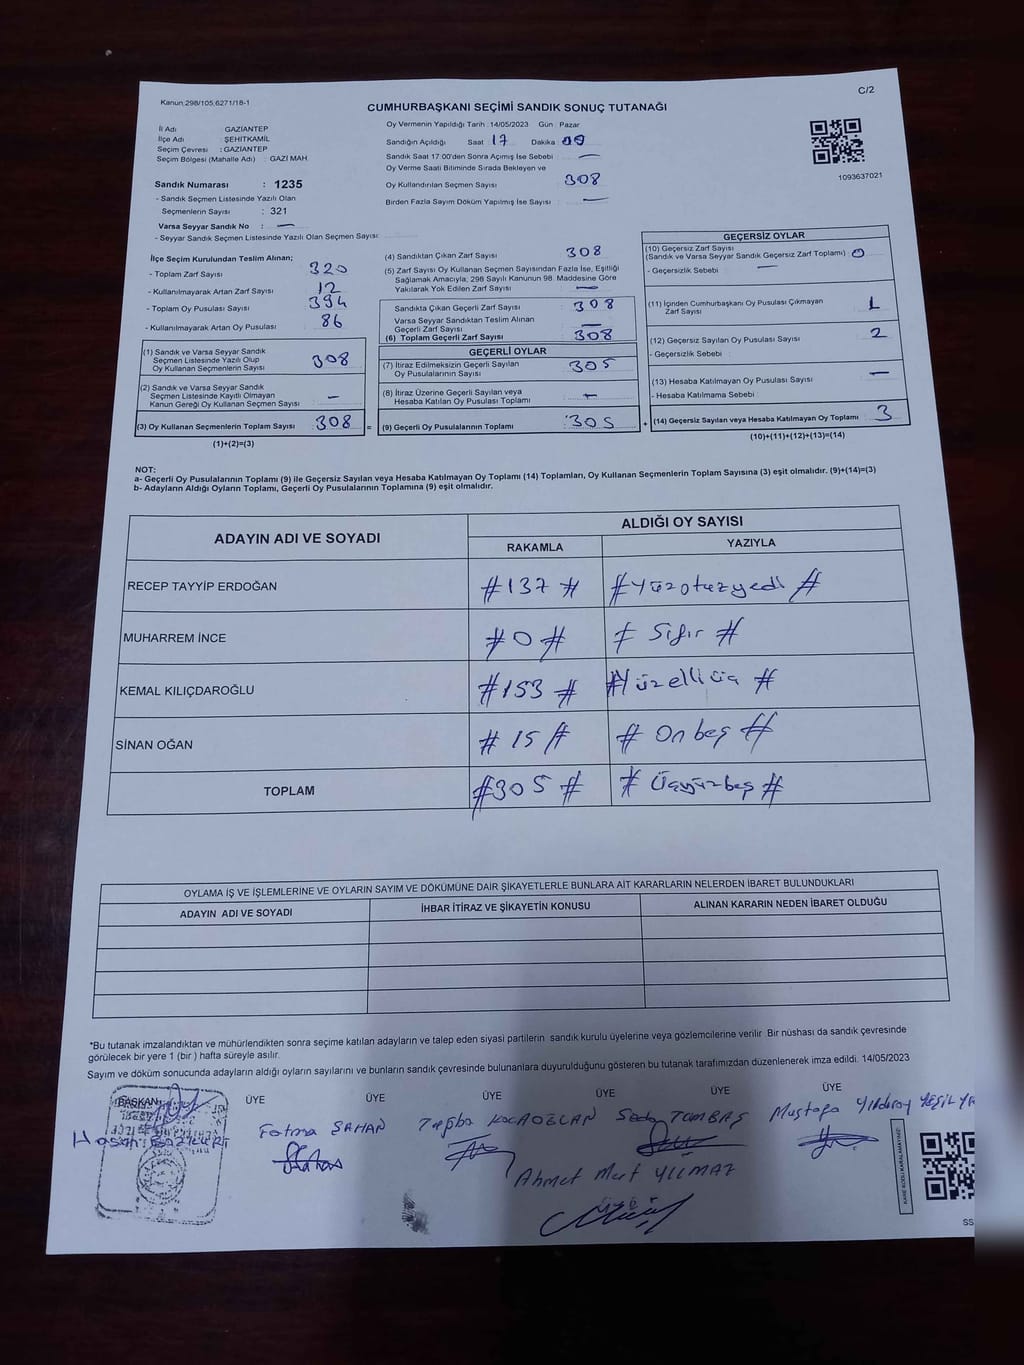 Kanun,298/105,6271/18-1
C/2
CUMHURBAŞKANI SEÇİMİ SANDIK SONUÇ TUTANAĞI
İl Adı : GAZİANTEP
İlçe Adı : ŞEHİTKAMİL
Seçim Çevresi : GAZİANTEP
Seçim Bölgesi (Mahalle Adı) : GAZİ MAH.
Sandık Numarası : 1235
- Sandık Seçmen Listesinde Yazılı Olan
Seçmenlerin Sayısı : 321
Varsa Seyyar Sandık No : —
- Seyyar Sandık Seçmen Listesinde Yazılı Olan Seçmen Sayısı:
Oy Vermenin Yapıldığı Tarih :14/05/2023 Gün : Pazar
Sandığın Açıldığı Saat 17 Dakika 00
Sandık Saat 17:00'den Sonra Açımış İse Sebebi —
Oy Verme Saati Bitiminde Sırada Bekleyen ve
Oy Kullandırılan Seçmen Sayısı 308
Birden Fazla Sayım Döküm Yapılmış İse Sayısı —
1093637021
İlçe Seçim Kurulundan Teslim Alınan;
- Toplam Zarf Sayısı 320
- Kullanılmayarak Artan Zarf Sayısı 12
- Toplam Oy Pusulası Sayısı 394
- Kullanılmayarak Artan Oy Pusulası 86
(1) Sandık ve Varsa Seyyar Sandık
Seçmen Listesinde Yazılı Olup
Oy Kullanan Seçmenlerin Sayısı 308
(2) Sandık ve Varsa Seyyar Sandık
Seçmen Listesinde Kayıtlı Olmayan
Kanun Gereği Oy Kullanan Seçmen Sayısı —
(3) Oy Kullanan Seçmenlerin Toplam Sayısı 308 =
(1)+(2)=(3)
(4) Sandıktan Çıkan Zarf Sayısı 308
(5) Zarf Sayısı Oy Kullanan Seçmen Sayısından Fazla İse, Eşitliği
Sağlamak Amacıyla, 298 Sayılı Kanunun 98. Maddesine Göre
Yakılarak Yok Edilen Zarf Sayısı —
Sandıkta Çıkan Geçerli Zarf Sayısı 308
Varsa Seyyar Sandıktan Teslim Alınan
Geçerli Zarf Sayısı —
(6) Toplam Geçerli Zarf Sayısı 308
GEÇERLİ OYLAR
(7) İtiraz Edilmeksizin Geçerli Sayılan
Oy Pusulalarının Sayısı 305
(8) İtiraz Üzerine Geçerli Sayılan veya
Hesaba Katılan Oy Pusulası Toplamı —
(9) Geçerli Oy Pusulalarının Toplamı 305 +
GEÇERSİZ OYLAR
(10) Geçersiz Zarf Sayısı
(Sandık ve Varsa Seyyar Sandık Geçersiz Zarf Toplamı) 0
- Geçersizlik Sebebi —
(11) İçinden Cumhurbaşkanı Oy Pusulası Çıkmayan
Zarf Sayısı 1
(12) Geçersiz Sayılan Oy Pusulası Sayısı 2
- Geçersizlik Sebebi :
(13) Hesaba Katılmayan Oy Pusulası Sayısı —
- Hesaba Katılmama Sebebi :
(14) Geçersiz Sayılan veya Hesaba Katılmayan Oy Toplamı 3
(10)+(11)+(12)+(13)=(14)
NOT:
a- Geçerli Oy Pusulalarının Toplamı (9) ile Geçersiz Sayılan veya Hesaba Katılmayan Oy Toplamı (14) Toplamları, Oy Kullanan Seçmenlerin Toplam Sayısına (3) eşit olmalıdır. (9)+(14)=(3)
b- Adayların Aldığı Oyların Toplamı, Geçerli Oy Pusulalarının Toplamına (9) eşit olmalıdır.
ADAYIN ADI VE SOYADI
ALDIĞI OY SAYISI
RAKAMLA YAZIYLA
RECEP TAYYİP ERDOĞAN #137# #Yüzotuzyedi#
MUHARREM İNCE #0# # Sıfır #
KEMAL KILIÇDAROĞLU #153# #Yüzelliüç #
SİNAN OĞAN # 15 # # Onbeş #
TOPLAM #305 # # Üçyüzbeş #
OYLAMA İŞ VE İŞLEMLERİNE VE OYLARIN SAYIM VE DÖKÜMÜNE DAİR ŞİKAYETLERLE BUNLARA AİT KARARLARIN NELERDEN İBARET BULUNDUKLARI
ADAYIN ADI VE SOYADI İHBAR İTİRAZ VE ŞİKAYETİN KONUSU ALINAN KARARIN NEDEN İBARET OLDUĞU
*Bu tutanak imzalandıktan ve mühürlendikten sonra seçime katılan adayların ve talep eden siyasi partilerin sandık kurulu üyelerine veya gözlemcilerine verilir. Bir nüshası da sandık çevresinde
görülecek bir yere 1 (bir ) hafta süreyle asılır.
Sayım ve döküm sonucunda adayların aldığı oyların sayılarını ve bunların sandık çevresinde bulunanlara duyurulduğunu gösteren bu tutanak tarafımızdan düzenlenerek imza edildi. 14/05/2023
BAŞKAN ÜYE ÜYE ÜYE ÜYE ÜYE ÜYE
Hasan Fatma ŞAHAN KOCAOĞLAN Seda TOMBAŞ Mustafa Yıldıray YEŞİL
Ahmet Mert YILMAZ
KARE KODU KARALAMAYINIZ!
SS